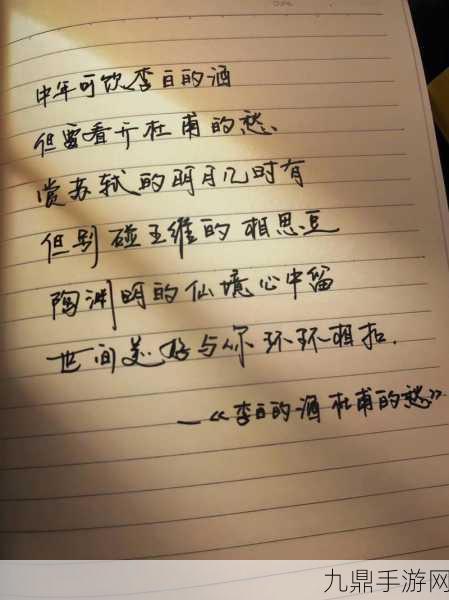 中年可饮李白的酒
但要看开杜甫的愁
赏苏轼的明月几时有
但别碰王维的相思豆
陶渊明的仙境心中留
世间美好与你环环相扣.
—《李白的酒杜甫的愁》
九鼎手游网